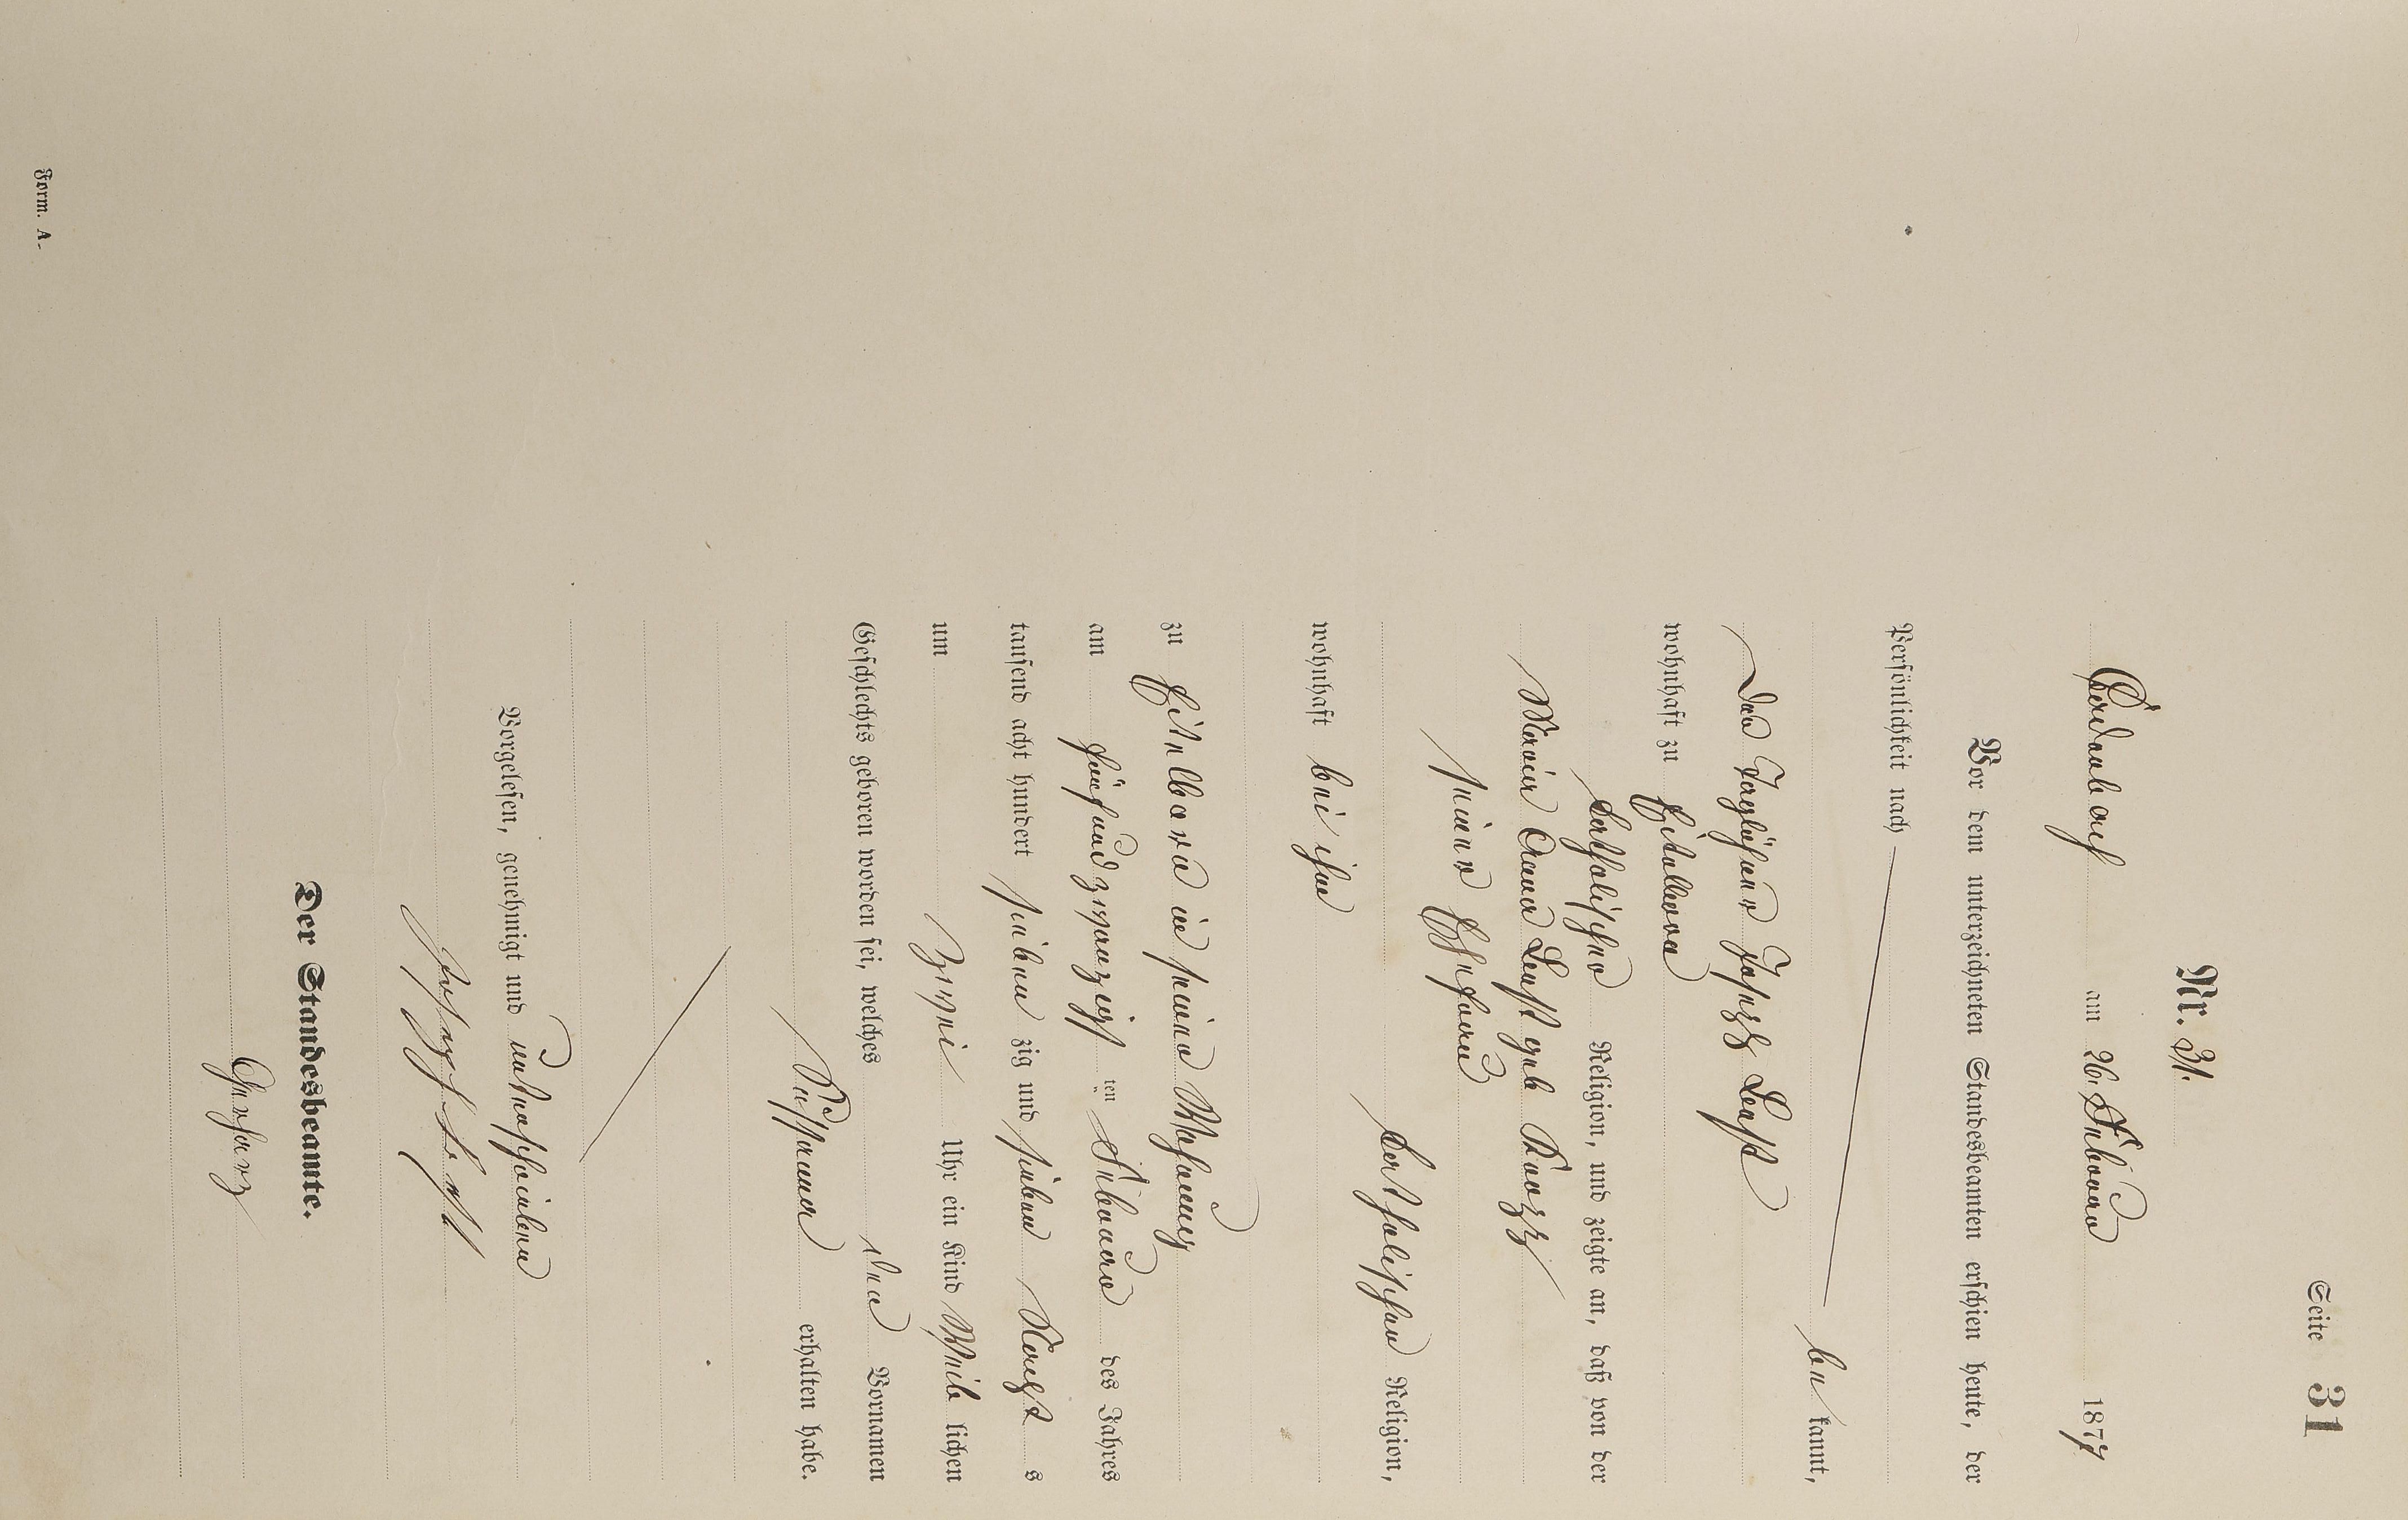 Seite 31
Nr. 31.
am 26. Februar 1877
Vor dem unterzeichneten Standesbeamten erschien heute, der
Persönlichkeit nach
be kannt,
der Taglöhner Joseph
wohnhaft zu
katholischer Religion, und zeigte an, daß von der
Maria Anna geb
seiner Ehefrau
katholischer Religion,
wohnhaft bei ihm
zu in seiner Wohnung
am fünfundzwanzigst ten Februar des Jahres
tausend acht hundert sieben zig und sieben Nachts
um zwei Uhr ein Kind Weib lichen
Geschlechts geboren worden sei, welches den Vornamen
Susanna erhalten habe.
Vorgelesen, genehmigt und unterschrieben
Der Standesbeamte.
Form. A.